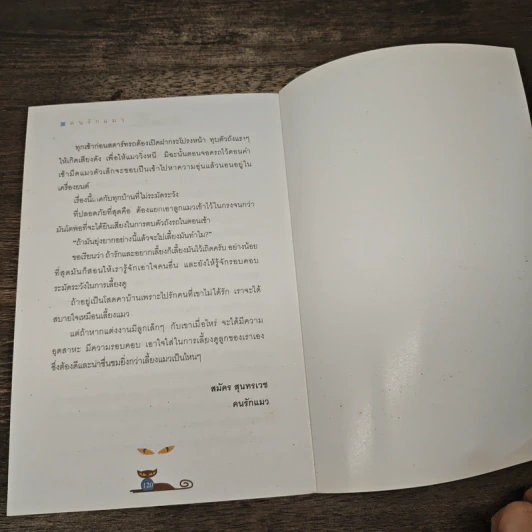 คนรักแมว
ทุกเช้าก่อนสตาร์ทรถต้องเปิดฝากระโปรงหน้า ทุบตัวถังแรงๆ
ให้เกิดเสียงดัง เพื่อให้แมววิ่งหนี มิฉะนั้นตอนจอดรถไว้ตอนค่ำ
เช้ามืดแมวตัวเล็กจะชอบปีนเข้าไปหาความอุ่นแล้วนอนอยู่ใน
เครื่องยนต์
เรื่องนี้เกิดกับทุกบ้านที่ไม่ระมัดระวัง
ที่ปลอดภัยที่สุดคือ ต้องแยกเอาลูกแมวเข้าไว้ในกรงจนกว่า
มันโตพอที่จะได้ยินเสียงในการตบตัวถังรถในตอนเช้า
"ถ้ามันยุ่งยากอย่างนี้แล้วจะไปเลี้ยงมันทำไม?"
ขอเรียนว่า ถ้ารักและอยากเลี้ยงก็เลี้ยงมันไว้เถิดครับ อย่างน้อย
ที่สุดมันก็สอนให้เรารู้จักเอาใจคนอื่น และยังให้รู้จักรอบคอบ
ระมัดระวังในการเลี้ยงดู
ถ้าอยู่เป็นโสดคาบ้านเพราะไปรักคนที่เขาไม่ได้รัก เราจะได้
สบายใจเหมือนเลี้ยงแมว
แต่ถ้าหากแต่งงานมีลูกเล็กๆ กับเขาเมื่อไหร่ จะได้มีความ
อุตสาหะ มีความรอบคอบ เอาใจใส่ในการเลี้ยงดูลูกของเราเอง
ซึ่งต้องดีและน่าชื่นชมยิ่งกว่าเลี้ยงแมวเป็นไหนๆ
สมัคร สุนทรเวช
คนรักแมว
120